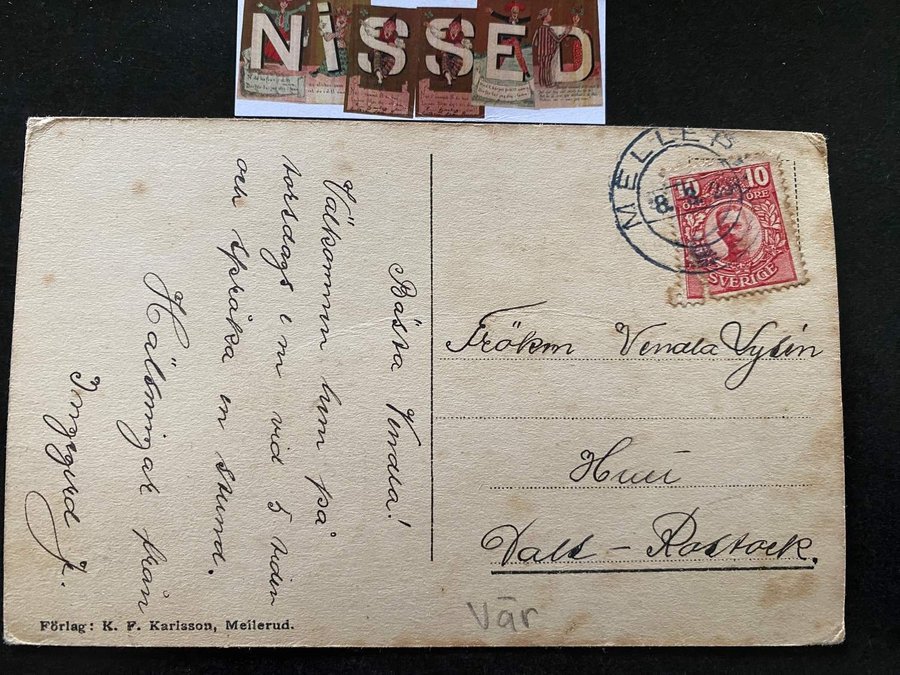 NiSSED
MELLER
8.
10
10
ÖRE
ÖRE
SVERIGE
Bästa Vendla!
Välkommen hem på
torsdags e m vid 5 tiden
och språka en stund.
Hälsningar från
Ingegerd J.
Fröken Vendla Lysén
Dals - Rostock.
Vår
Förlag: K. F. Karlsson, Mellerud.